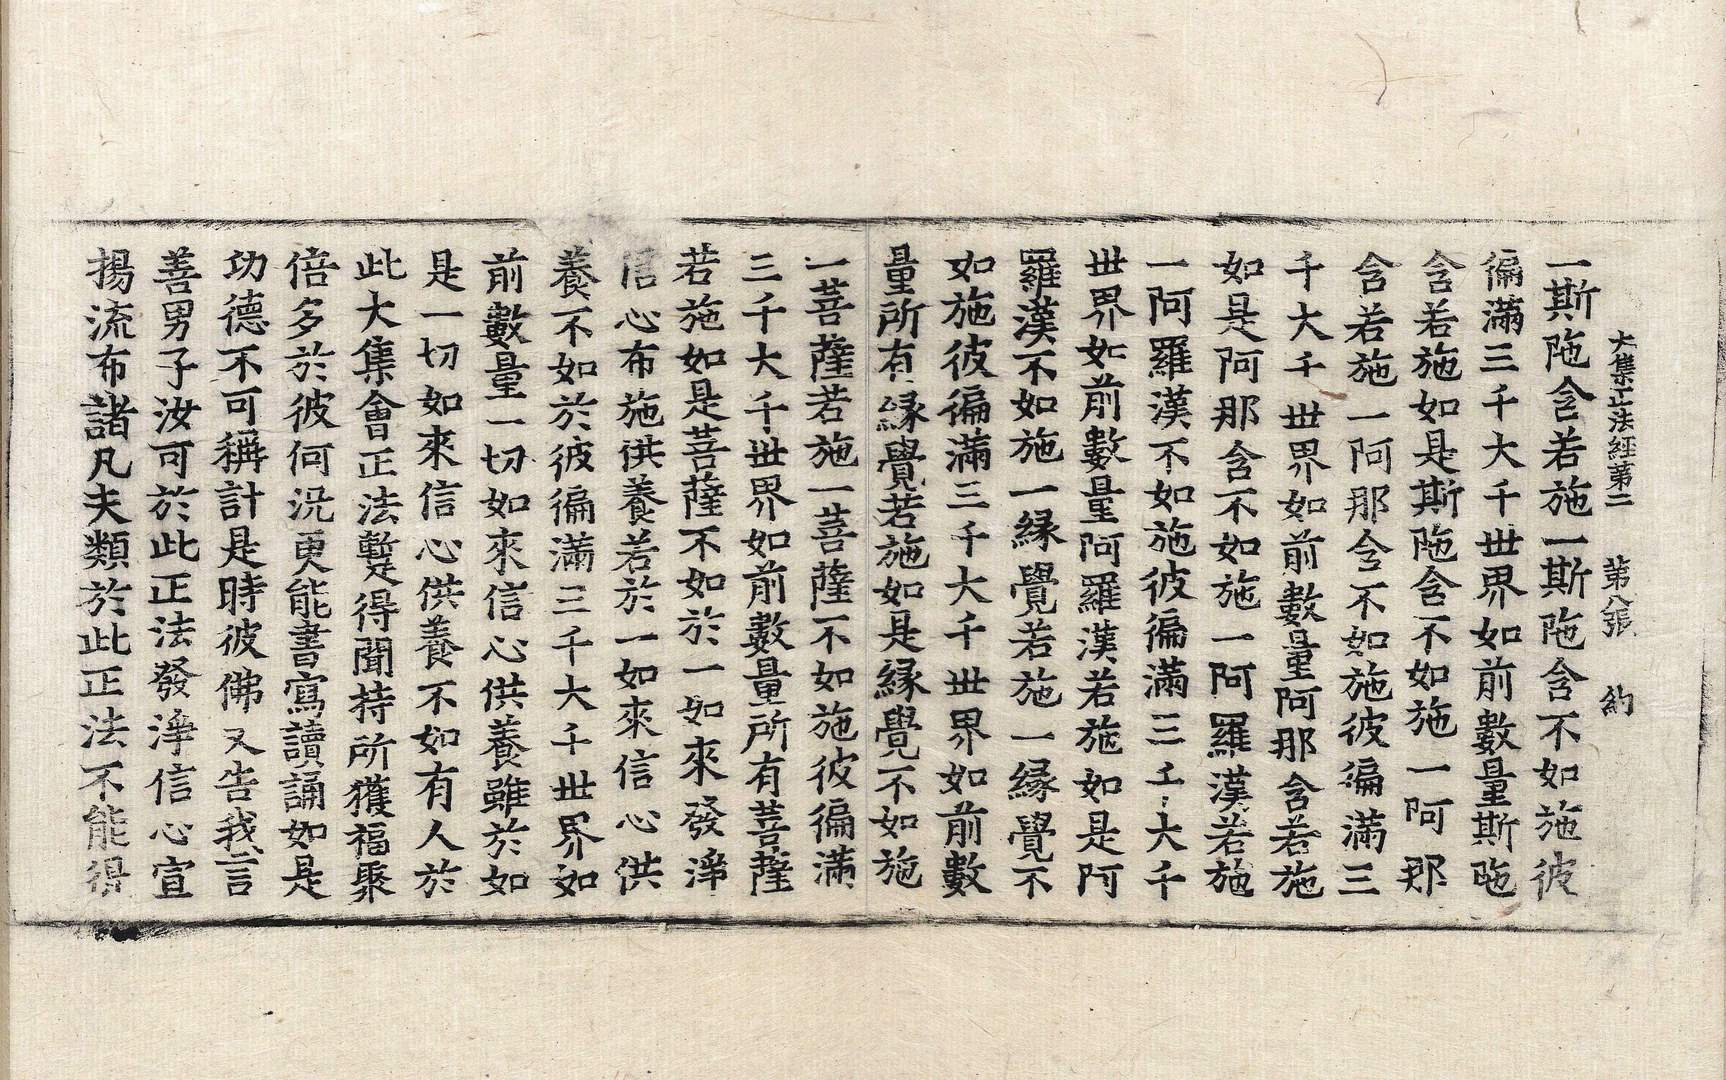 大集正法經第二　第八張　約
一斯陁含若施一斯陁含不如施彼
徧滿三千大千世界如前數量斯陁
含若施如是斯陁含不如施一阿那
含若施一阿那含不如施彼徧滿三
千大千世界如前數量阿那含若施
如是阿那含不如施一阿羅漢若施
一阿羅漢不如施彼徧滿三千大千
世界如前數量阿羅漢若施如是阿
羅漢不如施一緣覺若施一緣覺不
如施彼徧滿三千大千世界如前數
量所有緣覺若施如是緣覺不如施
一菩薩若施一菩薩不如施彼徧滿
三千大千世界如前數量所有菩薩
若施如是菩薩不如於一如來發淨
信心布施供養若於一如來信心供
養不如於彼徧滿三千大千世界如
前數量一切如來信心供養雖於如
是一切如來信心供養不如有人於
此大集會正法蹔得聞持所獲福聚
倍多於彼何況更能書寫讀誦如是
功德不可稱計是時彼佛又告我言
善男子汝可於此正法發淨信心宣
揚流布諸凡夫類於此正法不能得